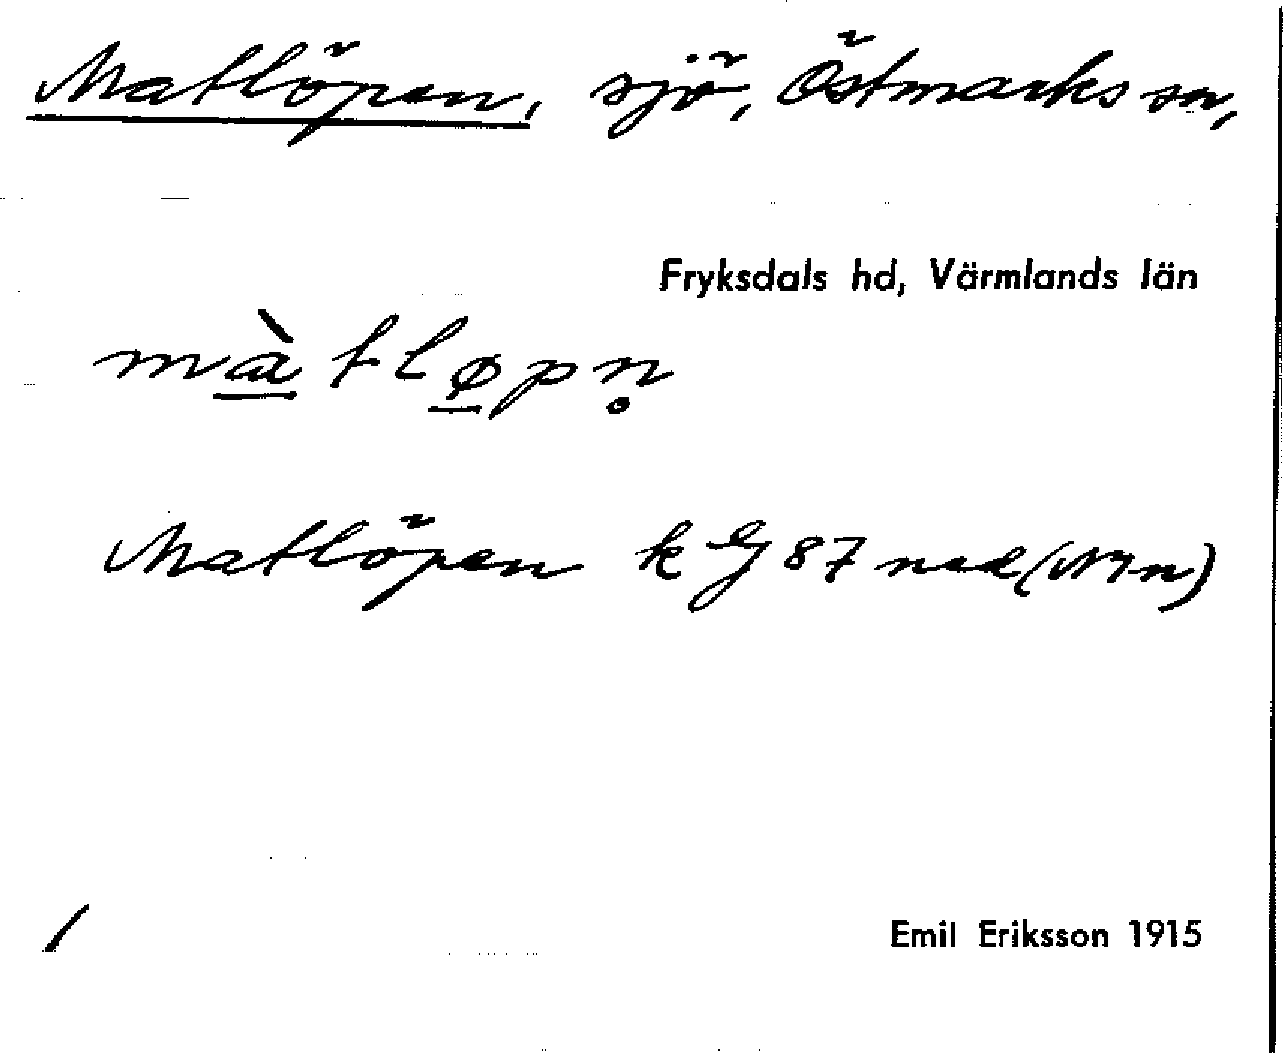 Matlöpen, sjö, Östmarks sn,
Fryksdals hd, Värmlands län
màtløpn̥
Matlöpen k G 87 ned (N7n)
/
Emil Eriksson 1915